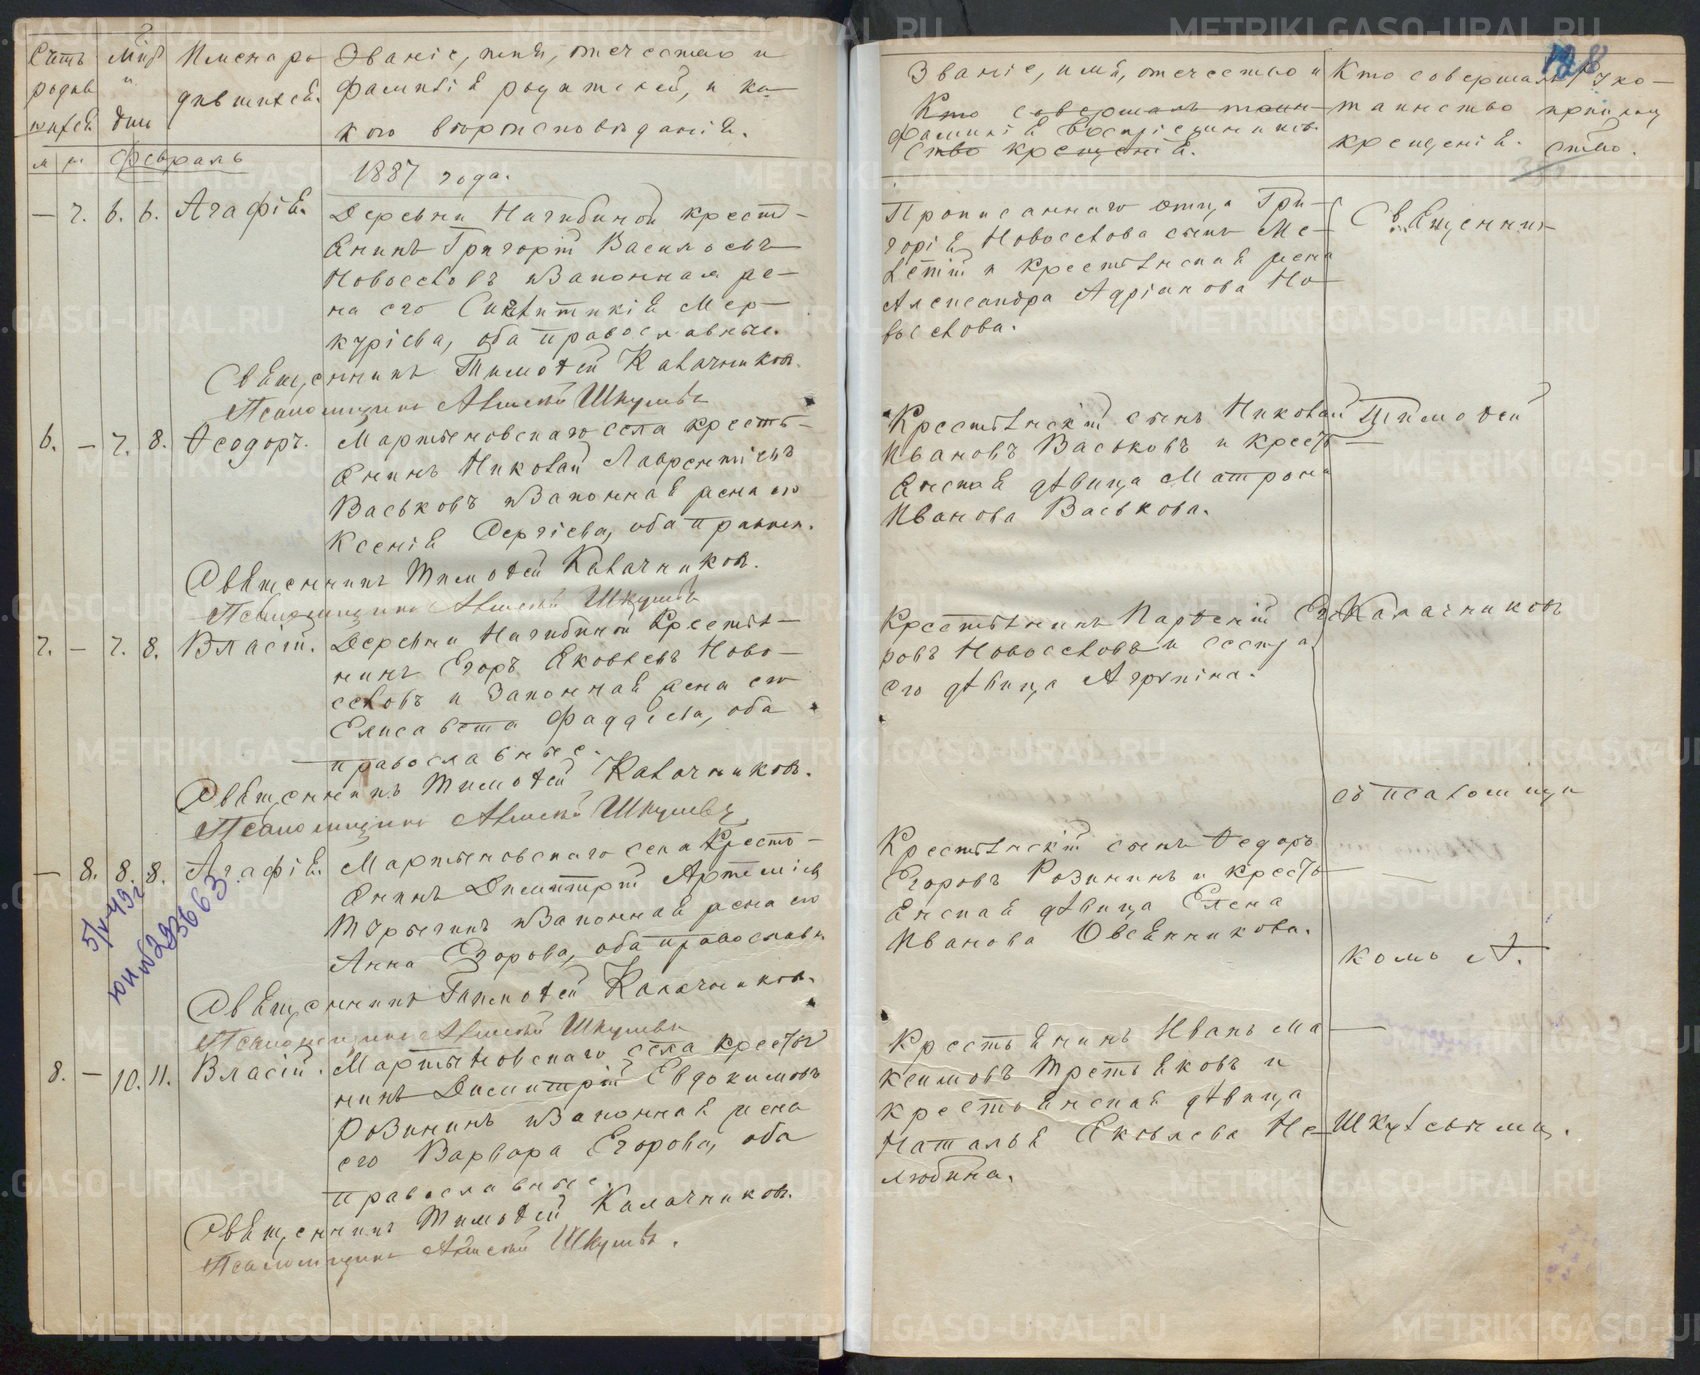 Счетъ
родив
шихся
Мѣс.
и
дни
Имена ро
дившихся.
Званіе, имя, отчество и
фамилія родителей, и ка-
кого вѣроисповѣданія.
м ж Февраль
1887 года.
— 7. 6. 6. Агафія.
Деревни Нагибиной кресть-
янинъ Григорій Васильевъ
Новоселовъ и законная же-
на его Синклитикія Мер-
куріева, оба православные.
Священникъ Тимоѳей Калачниковъ.
Псаломщикъ Алексѣй Шкулевъ
6. — 7. 8. Ѳеодоръ.
Мартыновскаго села кресть-
янинъ Николай Лаврентіевъ
Васьковъ и законная жена его
Ксенія Сергіева, оба правосл.
Священникъ Тимоѳей Калачниковъ.
Псаломщикъ Алексѣй Шкулевъ
7. — 7. 8. Власій.
Деревни Нагибиной Крестья-
нинъ Егоръ Яковлевъ Ново-
селовъ и законная жена его
Елисавета Фаддеева, оба
православные.
Священникъ Тимоѳей Калачниковъ.
Псаломщикъ Алексѣй Шкулевъ
— 8. 8. 8. Агафія.
Мартыновскаго села Кресть-
янинъ Димитрій Артеміевъ
Турыгинъ и законная жена его
Анна Егорова, оба православн
5/V-49г
ЮИ №293663
Священникъ Тимоѳей Калачниковъ.
Псаломщикъ Алексѣй Шкулевъ
8. — 10. 11. Власій.
Мартыновскаго села крестья
нинъ Димитрій Евдокимовъ
Розининъ и законная жена
его Варвара Егорова, оба
православные.
Священникъ Тимоѳей Калачниковъ.
Псаломщикъ Алексѣй Шкулевъ.
128
Званіе, имя, отчество и
Кто совершалъ таин-
фамилія воспріемниковъ.
ство крещенія.
Кто совершалъ
таинство
крещенія.
Руко-
прикла
ство.
Прописаннаго отца Гри-
горія Новоселова сынъ Ме-
летій и крестьянская жена
Александра Адріанова Но-
воселова.
Священникъ
Крестьянскій сынъ Николай
Ивановъ Васьковъ и кресть-
янская дѣвица Матрона
Иванова Васькова.
Тимоѳей
Крестьянинъ Парѳеній Его-
ровъ Новоселовъ и сестра
его дѣвица Агрипина.
Калачниковъ
съ псаломщи
Крестьянскій сынъ Ѳедоръ
Егоровъ Розининъ и кресть-
янская дѣвица Елена
Иванова Овсянникова.
комъ А.
Крестьянинъ Иванъ Ма
ксимовъ Третьяковъ и
крестьянская дѣвица
Наталья Яковлева Не-
любина.
Шкулевымъ.
METRIKI.GASO-URAL.RU